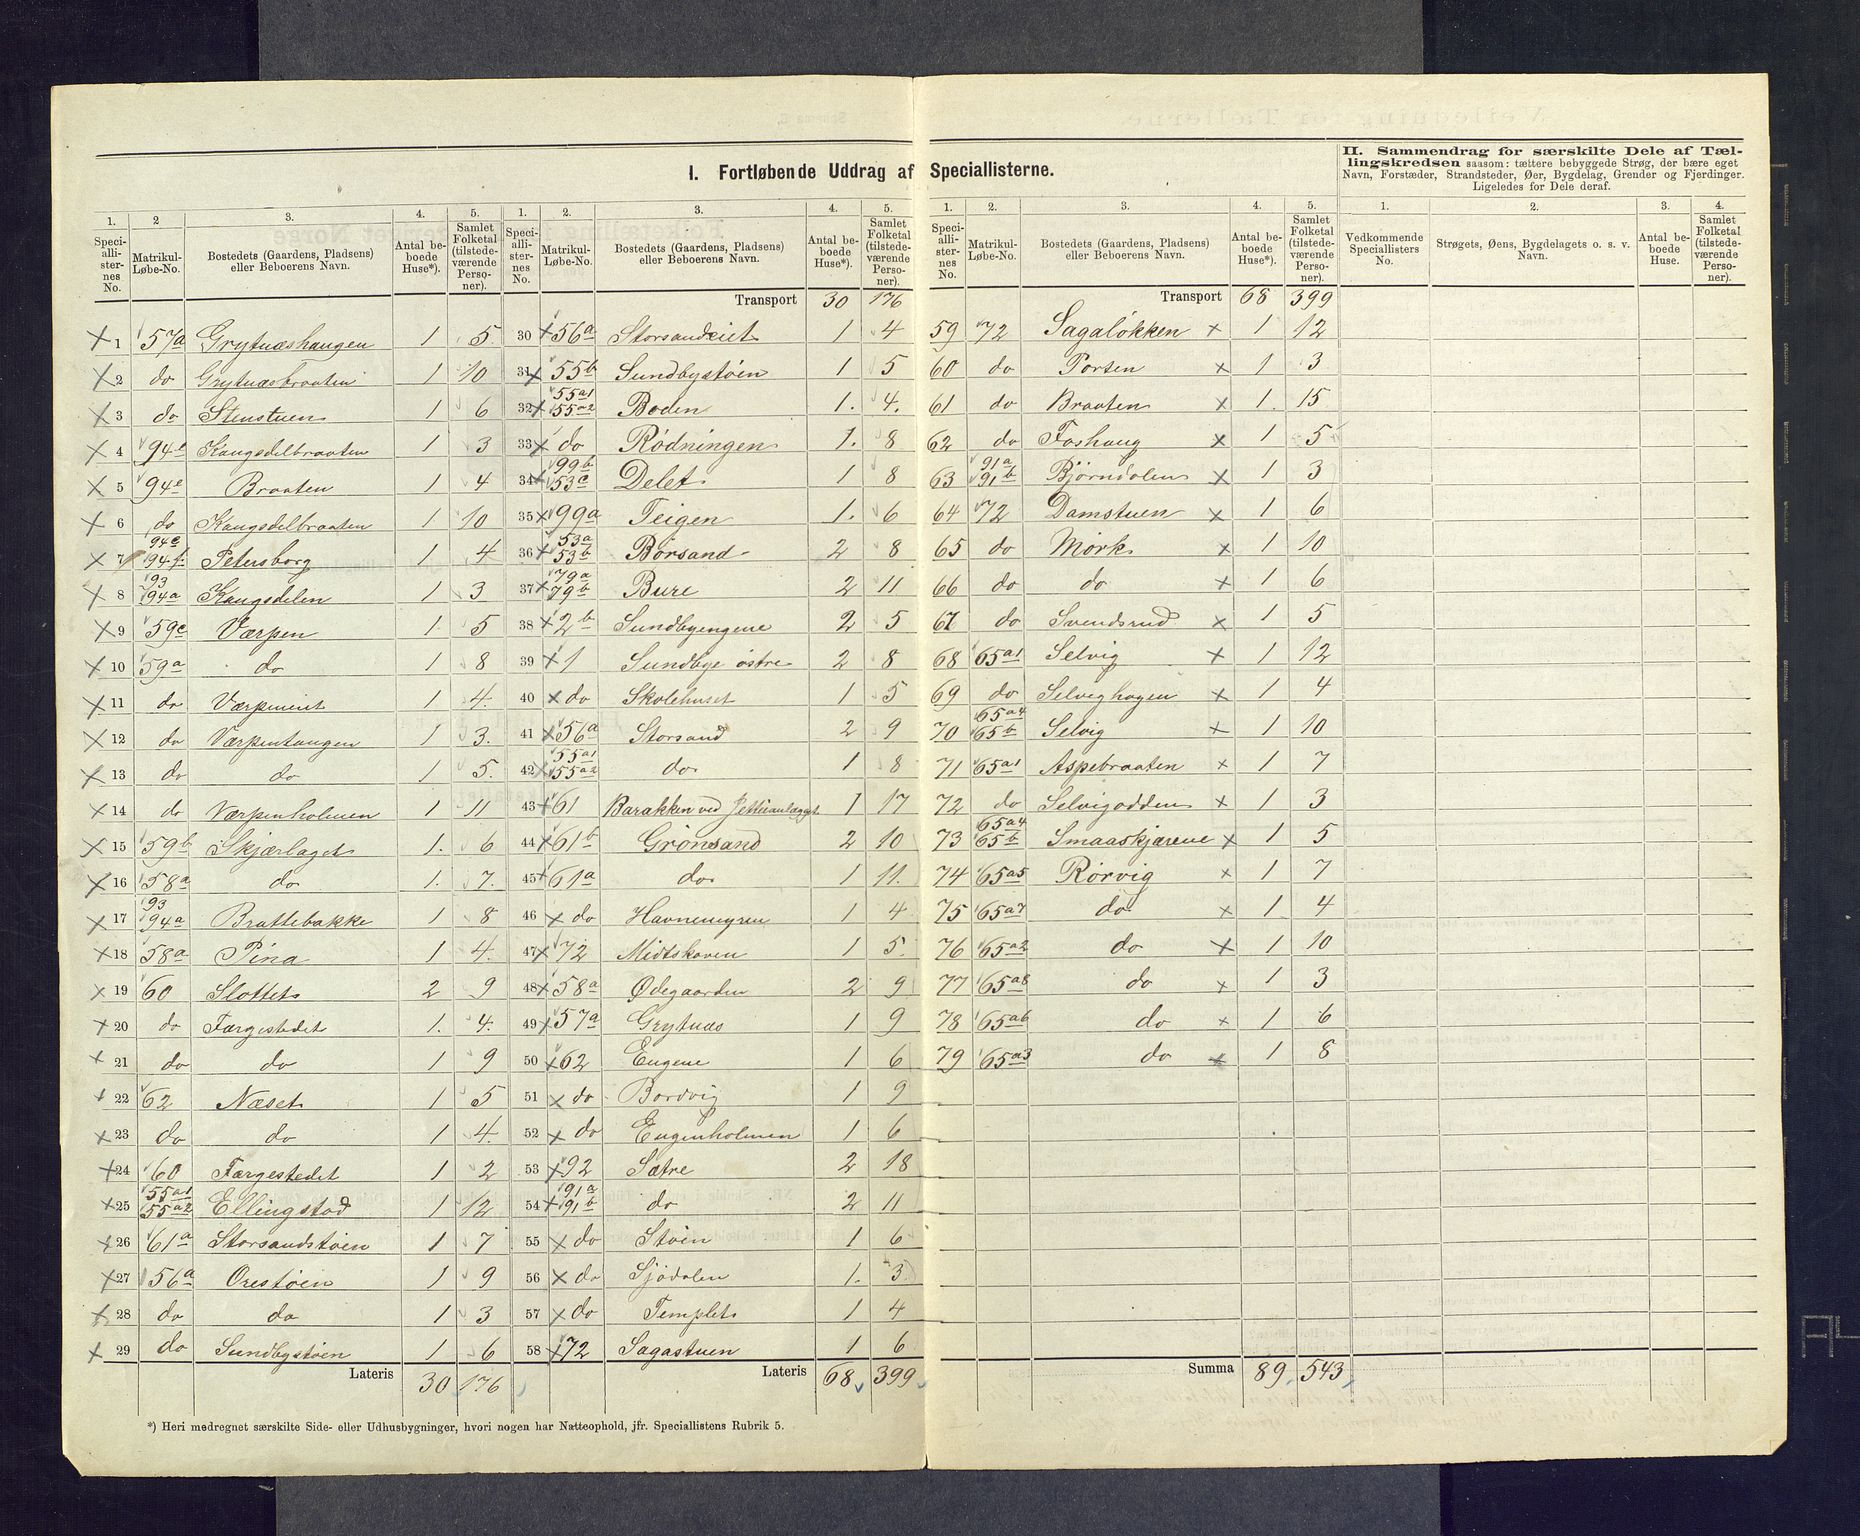 I. Fortløbende Uddrag af Speciallisterne.
II. Sammendrag for særskilte Dele af Tællingskredsen saasom: tættere bebyggede Strøg, der bære eget Navn, Forstæder, Strandsteder, Øer, Bygdelag, Grender og Fjerdinger. Ligeledes for Dele deraf.
1. 2 3. 4. 5.
Speciallisternes No. Matrikul-Løbe-No. Bostedets (Gaardens, Pladsens) eller Beboerens Navn. Antal beboede Huse*). Samlet Folketal (tilstedeværende Personer).
1 57a Grytnæshaugen 1 5
2 do Grytnæsbraaten 1 10
3 do Stenstuen 1 6
4 94e Kaugsdelbraaten 1 3
5 94e Braaten 1 4
6 do Kaugsdelbraaten 1 10
7 94e 94f Petersborg 1 4
8 93 94a Kaugsdelen 1 3
9 59c Værpen 1 5
10 59a do 1 8
11 do Værpeneiet 1 4
12 do Værpentangen 1 3
13 do do 1 5
14 do Værpenholmen 1 11
15 59b Skjærlaget 1 6
16 58a do 1 7
17 93 94a Brattebakke 1 8
18 58a Pina 1 4
19 60 Slottet 2 9
20 do Færgestedet 1 4
21 do do 1 9
22 62 Næset 1 5
23 do do 1 4
24 60 Færgestedet 1 2
25 55a1 55a2 Ellingstad 1 12
26 61a Storsandstøen 1 7
27 56a Orestøen 1 9
28 do do 1 3
29 do Sundbystøen 1 6
Lateris 30 176
1. 2. 3. 4. 5.
Speciallisternes No. Matrikul-Løbe-No. Bostedets (Gaardens, Pladsens) eller Beboerens Navn. Antal beboede Huse*). Samlet Folketal (tilstedeværende Personer).
Transport 30 176
30 56a Storsandeiet 1 4
31 55b Sundbystøen 1 5
32 55a1 55a2 Boden 1 4
33 do Rødningen 1 8
34 99b 53c Delet 1 8
35 99a Teigen 1 6
36 53a 53b Børsand 2 8
37 79a 79b Bure 2 11
38 2b Sundbyengene 2 5
39 1 Sundbye østre 2 8
40 do Skolehuset 1 5
41 56a Storsand 2 9
42 55a1 55a2 do 1 8
43 61 Barakken ved Jetteanlægget 1 17
44 61b Grønsand 2 10
45 61a do 1 11
46 do Havnemyren 1 4
47 72 Midtskoven 1 5
48 58a Ødegaarden 2 9
49 57a Grytnæs 1 9
50 62 Engene 1 6
51 do Bordvig 1 9
52 do Engenholmen 1 6
53 92 Sætre 2 18
54 91a 91b do 2 11
55 do Støen 1 6
56 do Sjødalen 1 3
57 do Templet 1 4
58 72 Sagastuen 1 6
Lateris 68 399
1. 2. 3. 4. 5.
Speciallisternes No. Matrikul-Løbe-No. Bostedets (Gaardens, Pladsens) eller Beboerens Navn. Antal beboede Huse*). Samlet Folketal (tilstedeværende Personer).
Transport 68 399
59 72 Sagaløkken 1 12
60 do Porten 1 3
61 do Braaten 1 15
62 do Foshaug 1 5
63 91a 91b Bjørndalen 1 3
64 72 Damstuen 1 6
65 do Mörk 1 10
66 do do 1 6
67 do Svendsrud 1 5
68 65a1 Selvig 1 12
69 do Selvighagen 1 4
70 65a4 65b Selvig 1 10
71 65a1 Aspebraaten 1 7
72 do Selvigodden 1 3
73 65a4 65b Smaaskjærene 1 5
74 65a5 Rørvig 1 7
75 65a7 do 1 4
76 65a2 do 1 10
77 65a8 do 1 3
78 65a6 do 1 6
79 65a3 do 1 8
Summa 89 543
1. 2. 3. 4.
Vedkommende Speciallisters No. Strøgets, Øens, Bygdelagets o. s. v. Navn. Antal beboede Huse. Samlet Folketal (tilstedeværende Personer).
*) Heri medregnet særskilte Side- eller Udhusbygninger, hvori nogen har Natteophold, jfr. Speciallistens Rubrik 5.